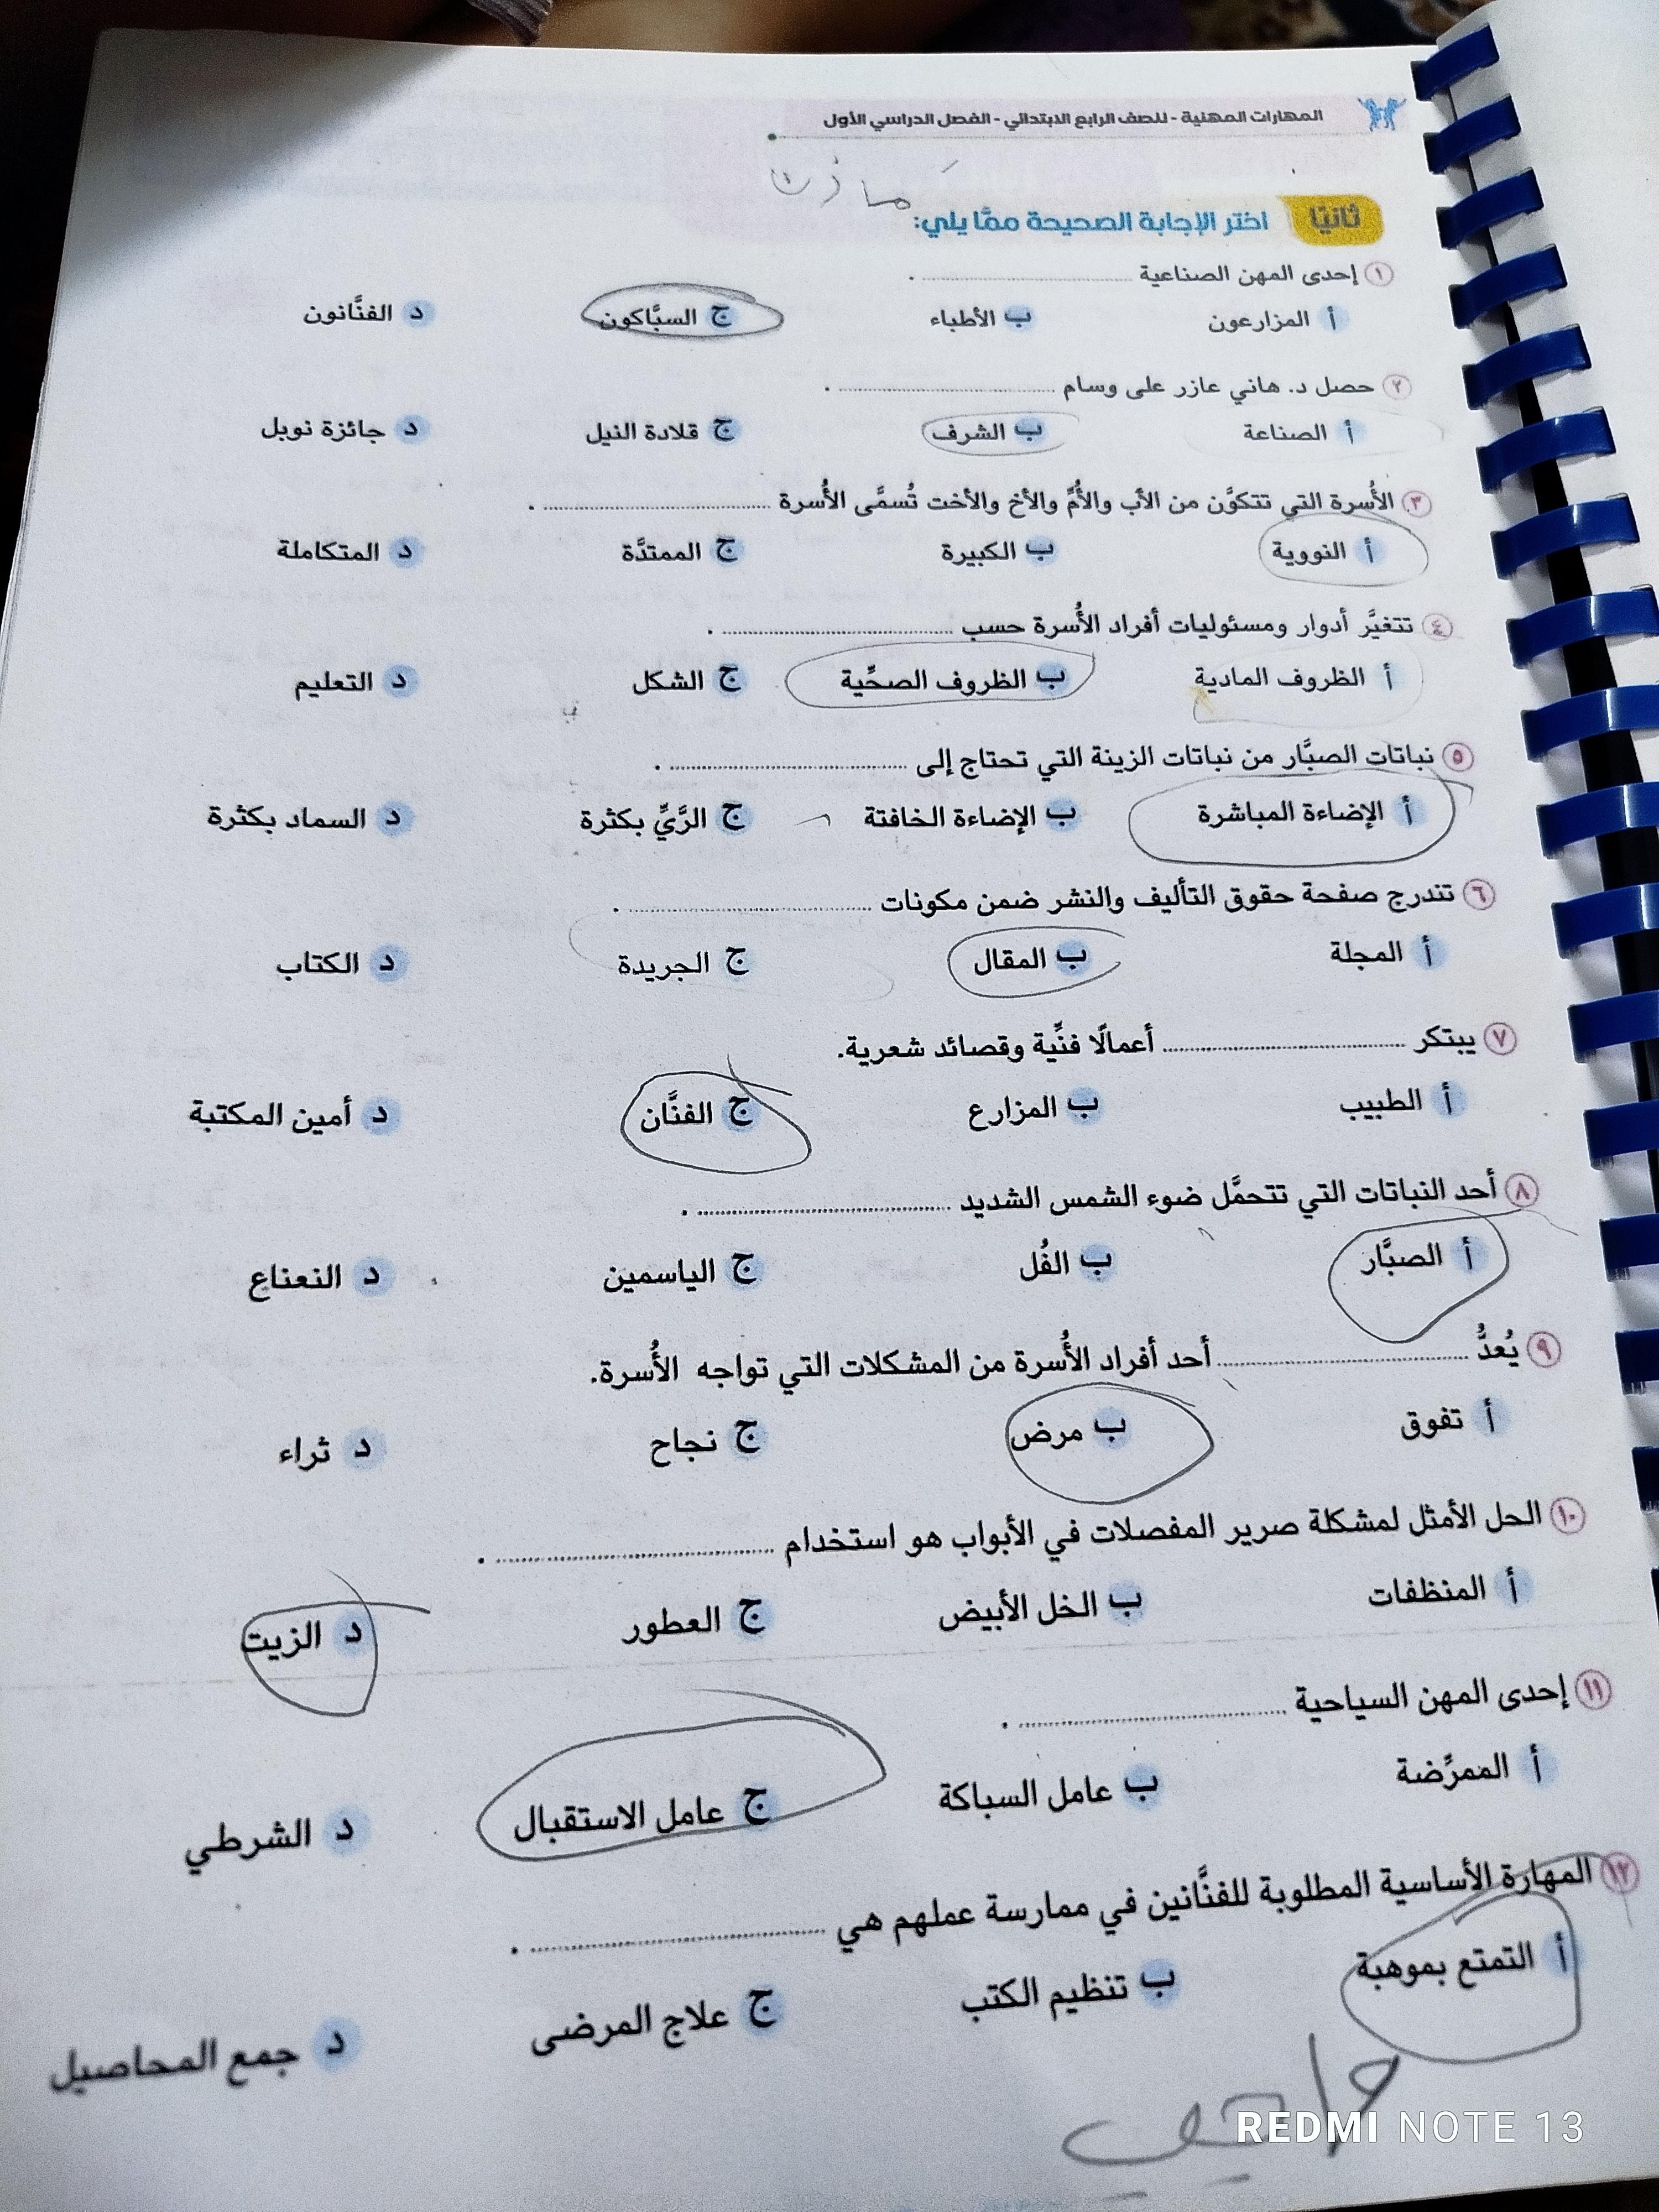 المهارات المهنية - للصف الرابع الابتدائي - الفصل الدراسي الأول
ثانيًا اختر الإجابة الصحيحة ممَّا يلي:
١ إحدى المهن الصناعية .................... .
أ المزارعون ب الأطباء ج السبَّاكون د الفنَّانون
٢ حصل د. هاني عازر على وسام .................... .
أ الصناعة ب الشرف ج قلادة النيل د جائزة نوبل
٣ الأُسرة التي تتكوَّن من الأب والأُمِّ والأخ والأخت تُسمَّى الأُسرة .................... .
أ النووية ب الكبيرة ج الممتدَّة د المتكاملة
٤ تتغيَّر أدوار ومسئوليات أفراد الأُسرة حسب .................... .
أ الظروف المادية ب الظروف الصحِّية ج الشكل د التعليم
٥ نباتات الصبَّار من نباتات الزينة التي تحتاج إلى .................... .
أ الإضاءة المباشرة ب الإضاءة الخافتة ج الرَّيِّ بكثرة د السماد بكثرة
٦ تندرج صفحة حقوق التأليف والنشر ضمن مكونات .................... .
أ المجلة ب المقال ج الجريدة د الكتاب
٧ يبتكر .................... أعمالًا فنِّية وقصائد شعرية.
أ الطبيب ب المزارع ج الفنَّان د أمين المكتبة
٨ أحد النباتات التي تتحمَّل ضوء الشمس الشديد .................... .
أ الصبَّار ب الفُل ج الياسمين د النعناع
٩ يُعدُّ .................... أحد أفراد الأُسرة من المشكلات التي تواجه الأُسرة.
أ تفوق ب مرض ج نجاح د ثراء
١٠ الحل الأمثل لمشكلة صرير المفصلات في الأبواب هو استخدام .................... .
أ المنظفات ب الخل الأبيض ج العطور د الزيت
١١ إحدى المهن السياحية .................... .
أ الممرِّضة ب عامل السباكة ج عامل الاستقبال د الشرطي
١٢ المهارة الأساسية المطلوبة للفنَّانين في ممارسة عملهم هي .................... .
أ التمتع بموهبة ب تنظيم الكتب ج علاج المرضى د جمع المحاصيل
REDMI NOTE 13